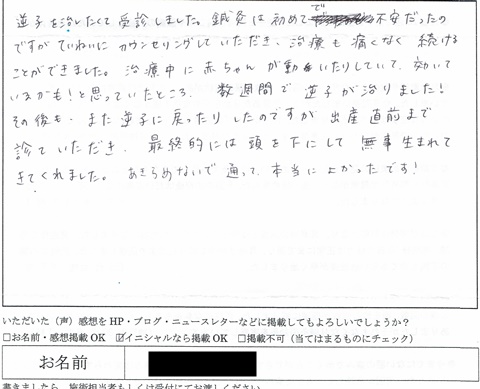 逆子を治したくて受診しました。鍼灸は初めてで不安だったの
ですがていねいにカウンセリングしていただき、治療も痛くなく続ける
ことができました。治療中に赤ちゃんが動いたりしていて、効いて
いるかも!と思っていたところ、数週間で逆子が治りました!
その後も、また逆子に戻ったりしたのですが出産直前まで
診ていただき、最終的には頭を下にして無事生まれて
きてくれました。あきらめないで通って、本当によかったです!
いただいた(声)感想をHP・ブログ・ニュースレターなどに掲載してもよろしいでしょうか?
□お名前・感想掲載OK ☑イニシャルなら掲載OK □掲載不可(当てはまるものにチェック)
お名前
書きましたら、施術担当者もしくは受付にてお渡しください